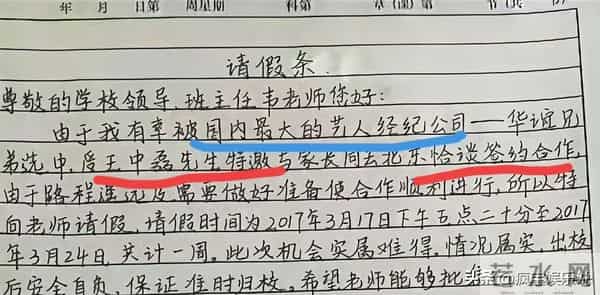 年 月 日第 周星期 科第 章(课) 节(页)
请假条
尊敬的学校领导、班主任韦老师您好:
由于我有幸被国内最大的艺人经纪公司——华谊兄
弟选中,应王中磊先生特邀与家长同去北京恰谈签约合作,
由于路程遥远及需要做好准备使合作顺利进行,所以特
向老师请假,请假时间为2017年3月17日下午五点二十分至2017
年3月24日,共计一周。此次机会实属难得,情况属实,出校
后安全自负,保证准时归校。希望老师能够批